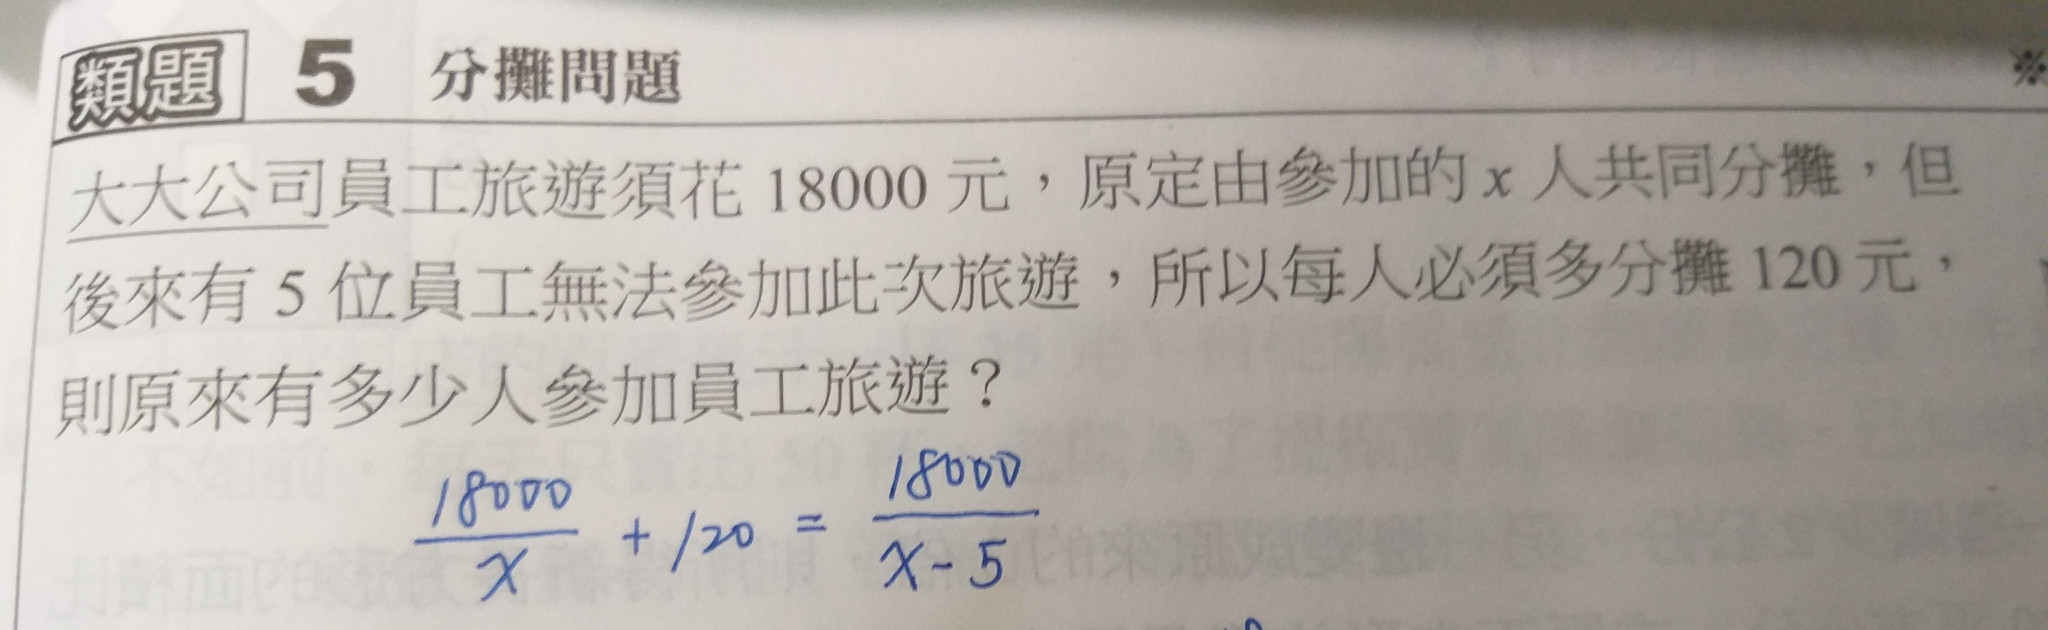 類題 5 分攤問題 ※
大大公司員工旅遊須花 18000 元，原定由參加的 x 人共同分攤，但
後來有 5 位員工無法參加此次旅遊，所以每人必須多分攤 120 元，
則原來有多少人參加員工旅遊？
18000/x + 120 = 18000/(x-5)